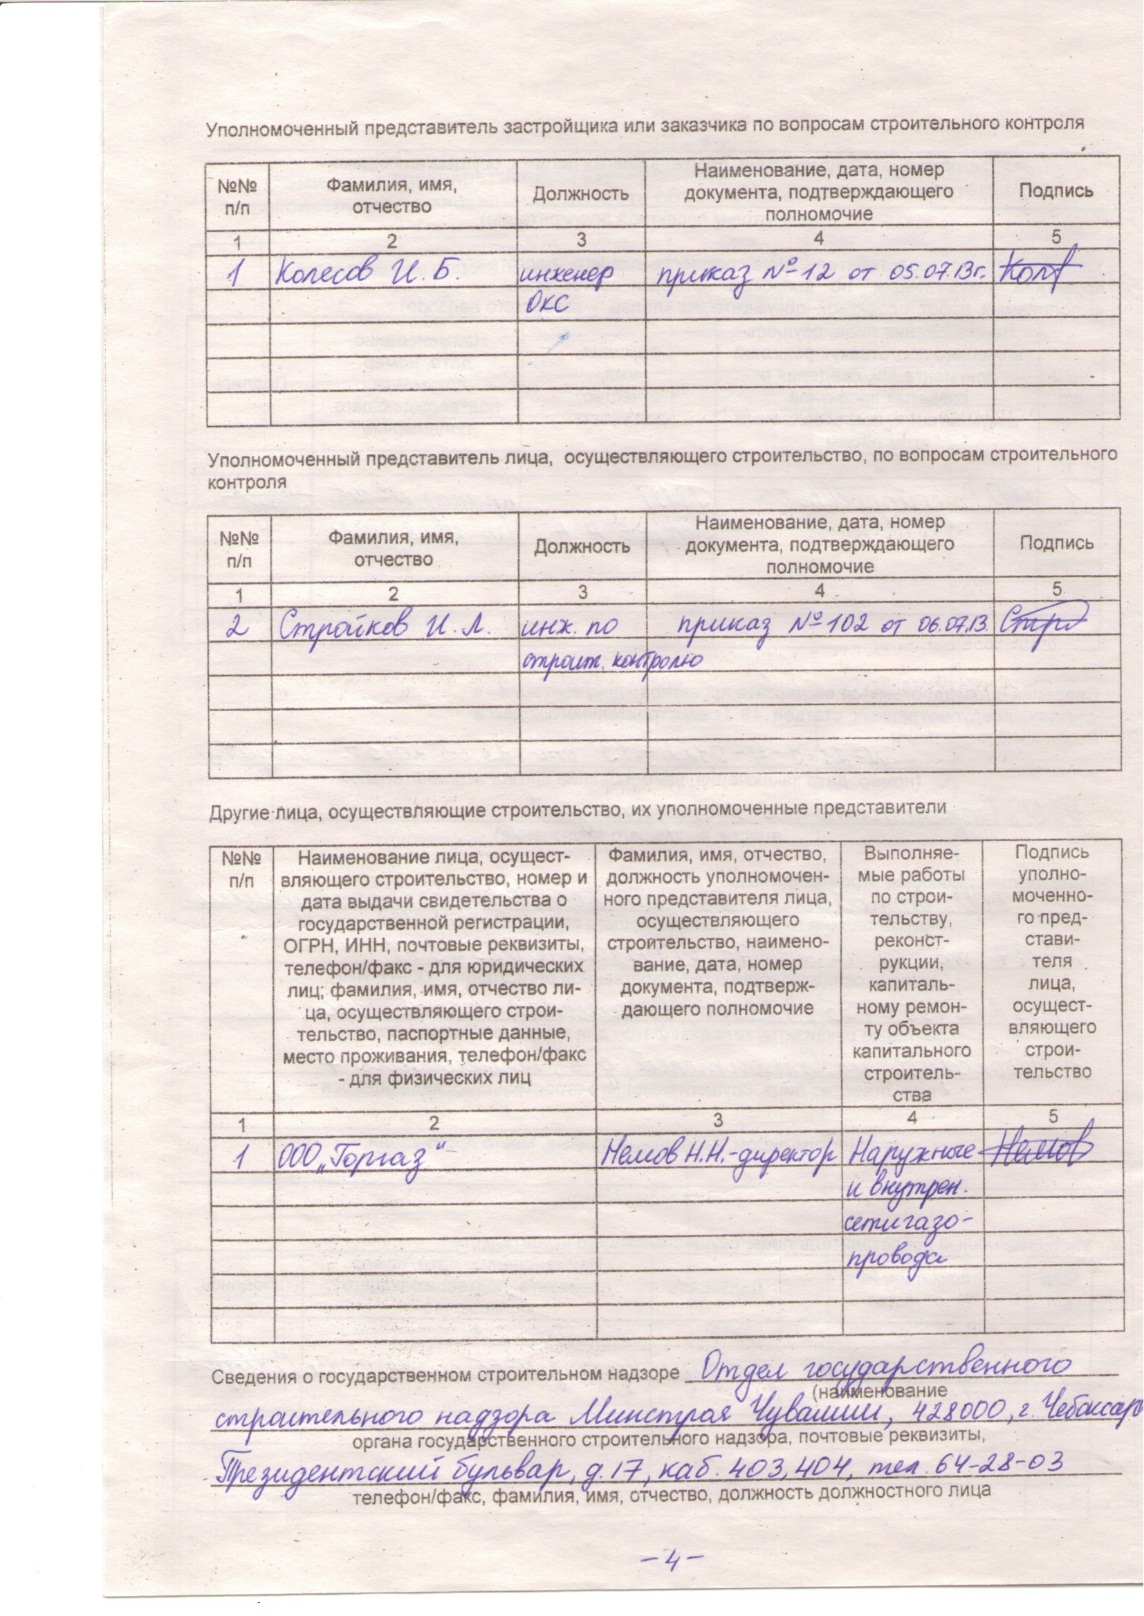 Уполномоченный представитель застройщика или заказчика по вопросам строительного контроля
№№ п/п
Фамилия, имя, отчество
Должность
Наименование, дата, номер документа, подтверждающего полномочие
Подпись
1 2 3 4 5
1 Колесов И. Б. инженер приказ № 12 от 05.07.13г. Кол
ОКС
Уполномоченный представитель лица, осуществляющего строительство, по вопросам строительного
контроля
№№ п/п
Фамилия, имя, отчество
Должность
Наименование, дата, номер документа, подтверждающего полномочие
Подпись
1 2 3 4 5
2 Стройков И. Л. инж. по приказ № 102 от 06.07.13.
строит. контролю
Другие лица, осуществляющие строительство, их уполномоченные представители
№№
п/п
Наименование лица, осущест-
вляющего строительство, номер и
дата выдачи свидетельства о
государственной регистрации,
ОГРН, ИНН, почтовые реквизиты,
телефон/факс - для юридических
лиц; фамилия, имя, отчество ли-
ца, осуществляющего строи-
тельство, паспортные данные,
место проживания, телефон/факс
- для физических лиц
Фамилия, имя, отчество,
должность уполномочен-
ного представителя лица,
осуществляющего
строительство, наимено-
вание, дата, номер
документа, подтверж-
дающего полномочие
Выполняе-
мые работы
по строи-
тельству,
реконст-
рукции,
капиталь-
ному ремон-
ту объекта
капитального
строитель-
ства
Подпись
уполно-
моченно-
го пред-
стави-
теля
лица,
осущест-
вляющего
строи-
тельство
1 2 3 4 5
1 ООО „Горгаз“ Немов Н.Н.-директор Наружные Немов
и внутрен.
сети газо-
провода
Сведения о государственном строительном надзоре Отдел государственного
(наименование
строительного надзора Минстроя Чувашии, 428000, г. Чебоксар
органа государственного строительного надзора, почтовые реквизиты,
Президентский бульвар, д. 17, каб. 403, 404, тел. 64-28-03
телефон/факс, фамилия, имя, отчество, должность должностного лица
- 4 -